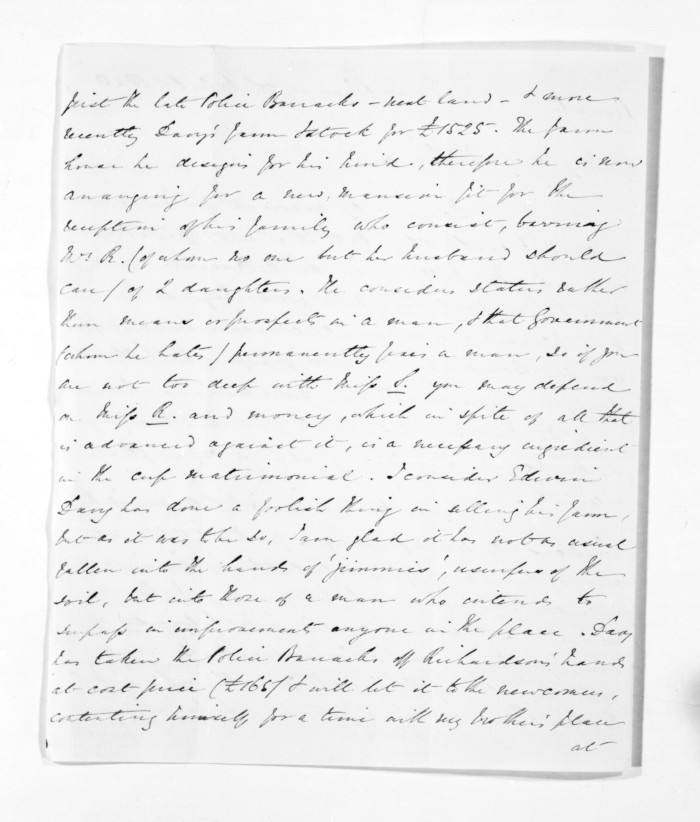 first the late Police Barracks – next land – & more
recently Davy's Farm & stock for £1525. The farm
house he designs for his hind, therefore he is now
arranging for a new mansion fit for the
reception of his family who consist, barring
Mrs R. (of whom no one but her husband should
care) of 2 daughters. He considers status rather
than means or prospects in a man, & that Government
(whom he hates) permanently fixes a man, so if you
are not too deep with Miss S. you may depend
on Miss R. and money, which in spite of all that
is advanced against it, is a necessary ingredient
in the cup matrimonial. I consider Edwin
Davy has done a foolish thing in selling his farm,
but as it was to be so, I am glad it has not as usual
fallen into the hands of 'jimmies', usurpers of the
soil, but into those of a man who intends to
surpass in improvements anyone in the place. Davy
has taken the Police Barracks off Richardson's hands
at cost price (£165) & will let it to the newcomers,
contenting himself for a time with my brother's place
at